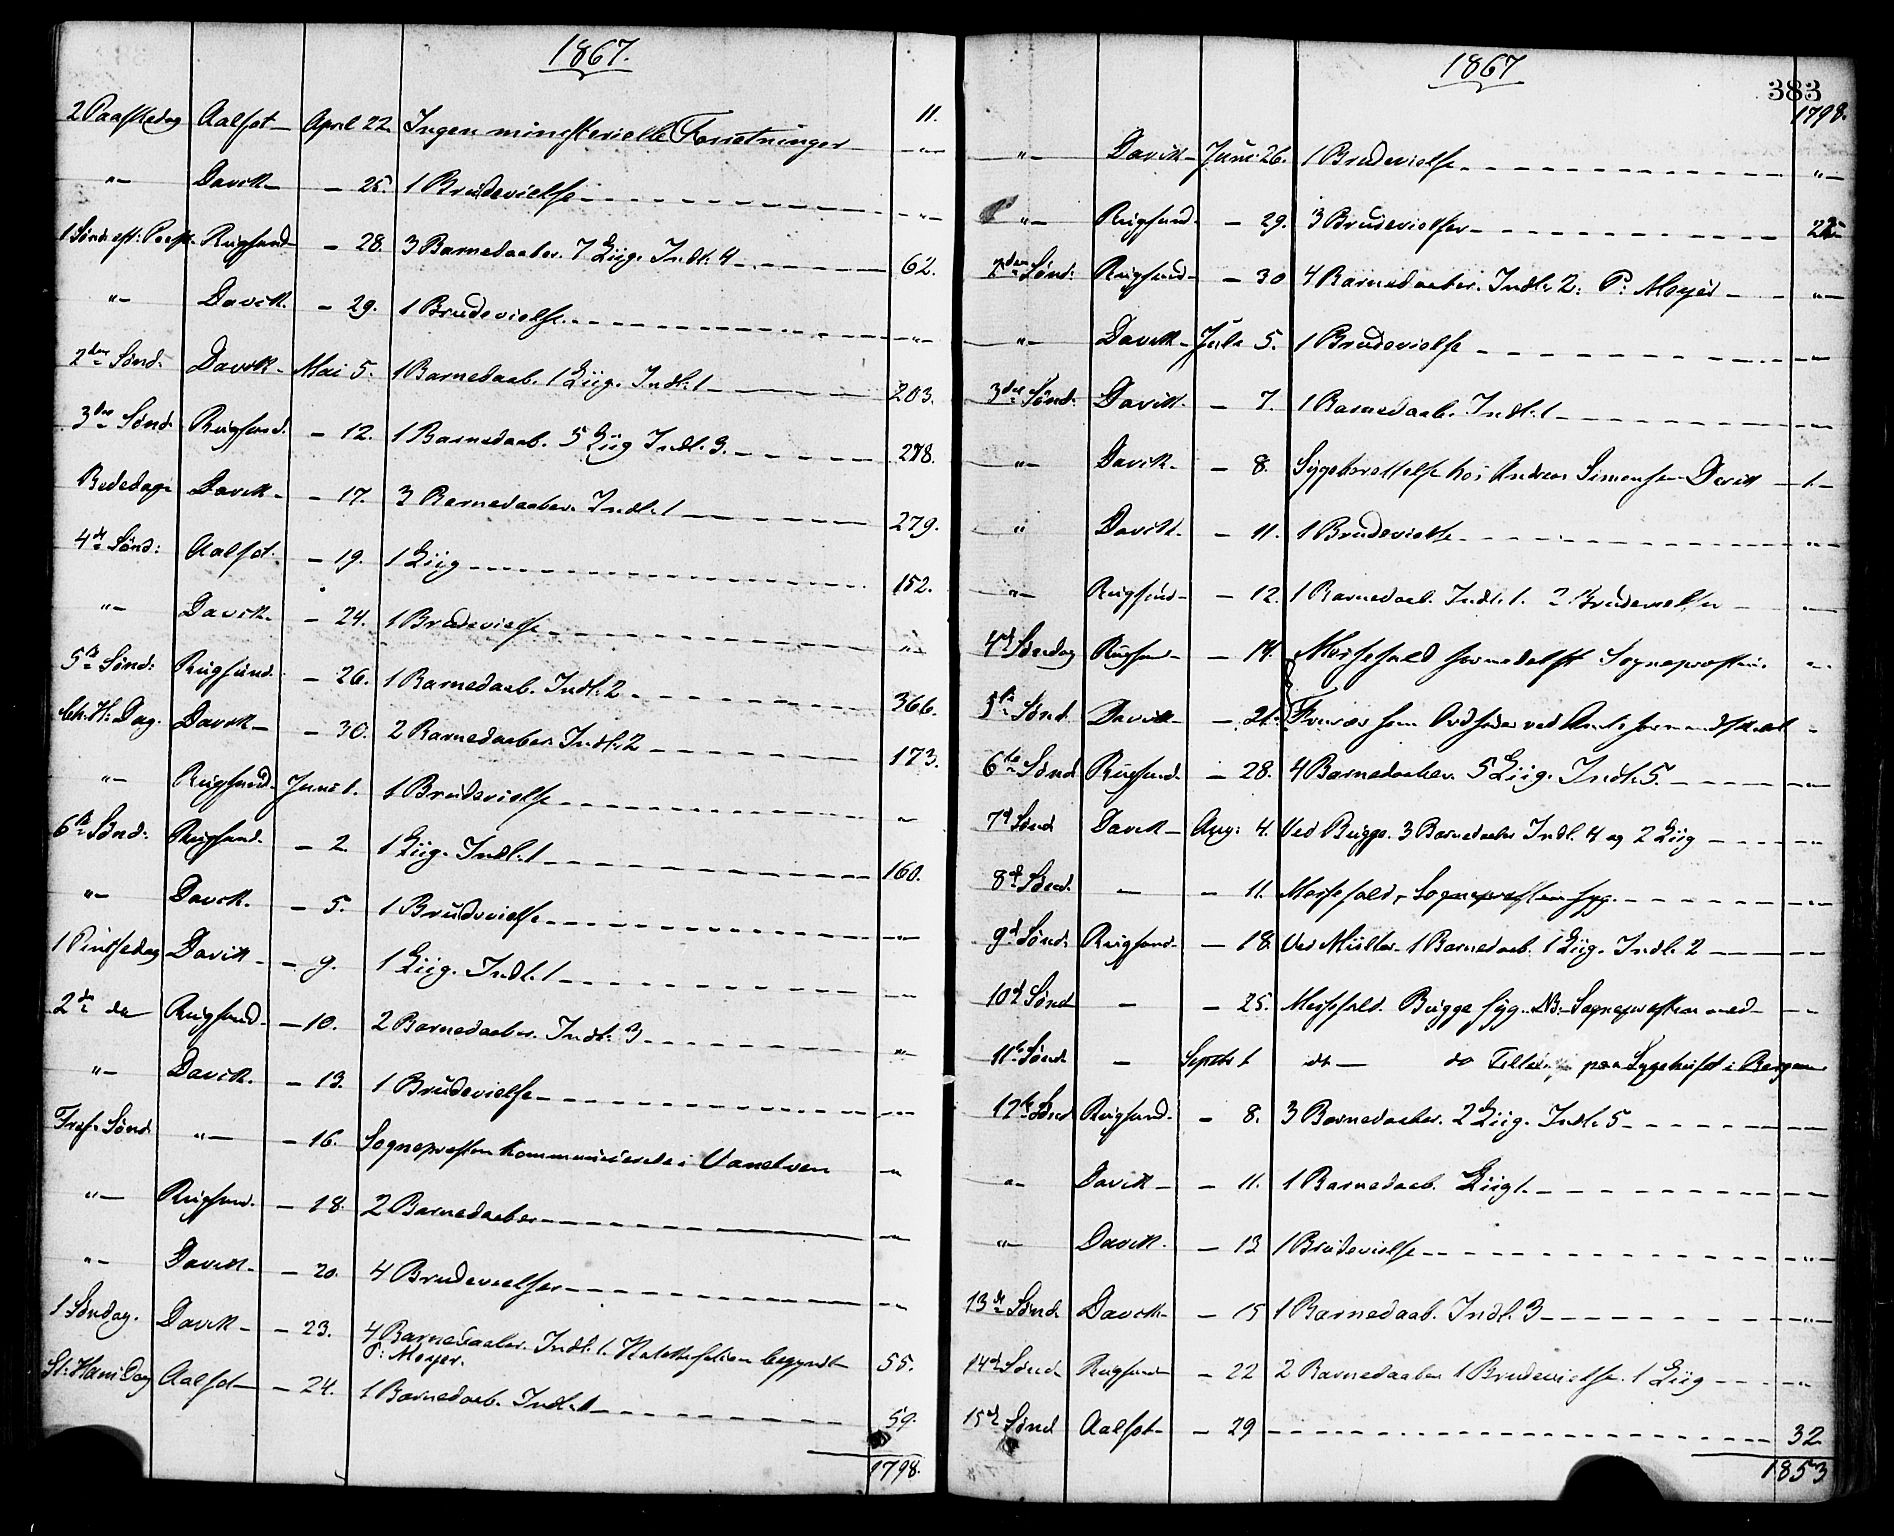 1867.
11.
2 Paaskedag Aalfot – April 22. Ingen ministerielle Forretninger – „ –
„ – Davik – – 25. 1 Brudevielse – „ –
1 Sønd. eft: Paask. Rugsund – – 28. 3 Barnedaaber. 7 Liig. Indl: 4 – 62.
„ – Davik. – 29. 1 Brudevielse – „ –
2den Sønd. Davik – Mai 5. 1 Barnedaab. 1 Liig. Indl: 1 – 203.
3die Sønd. Rugsund. – 12. 1 Barnedaab. 5 Liig Indl. 3. – 278.
Bededag. Davik – – 17. 3 Barnedaaber. Indl. 1 – 279.
4de Sønd: Aalfot. – 19. 1 Liig – 152.
„ – Davik. – 24. 1 Brudevielse – „ –
5te Sønd: Rugsund. – 26. 1 Barnedaab. Indl: 2 – 366.
Ch. H: Dag. Davik – – 30. 2 Barnedaaber Indl: 2 – 173.
„ – Rugsund. Juni 1. 1 Brudevielse –
6te Sønd: Rugsund. – 2. 1 Liig. Indl. 1 – 160.
„ – Davik. – 5. 1 Brudevielse – „ –
1 Pintsedag Davik – – 9. 1 Liig. Indl. 1 –
2den do Rugsund. – 10. 2 Barnedaaber. Indl. 3 – „ –
„ – Davik. – 13. 1 Brudevielse – „ –
Tref. Sønd. „ – – 16. Sognepresten kommunicerede i Vanelven – „
„ – Rugsund. – 18. 2 Barnedaaber – „ –
„ – Davik. – 20. 4 Brudevielser – „ –
1 Søndag. Davik – – 23. 4 Barnedaaber. Indl. 1. begyndt 55.
P: Meyer.
St. Hans Dag Aalfot – – 24. 1 Barnedaab. Indl. 1 – 59.
1798.
1867
383
1798.
„ – Davik – Juni 26. 1 Brudevielse – „ –
„ – Rugsund – – 29. 3 Brudevielser –
2den Sønd: Rugsund – – 30 4 Barnedaaber. Indl. 2: P: Meyer – „ –
„ – Davik – Juli 5. 1 Brudevielse – „ –
3die Sønd. Davik. – 7. 1 Barnedaab. Indl. 1 – „ –
„ – Davik – – 8. Sygeberettelse hos Andreas Simonsen Davik – 1 –
„ Davik. – 11. 1 Brudevielse – „ –
„ – Rugsund – – 12. 1 Barnedaab. Indl. 1. 2 Brudevielser –
4de Søndag Rugsund – – 14. Messefald formedelst Sogneprestens
5te Sønd Davik – – 21. Fravær som Ordfører ved Amtsformandskab –
6te Sønd Rugsund. – 28. 4 Barnedaaber. 5 Liig. Indl. 5. – „ –
7de Sønd Davik – Aug: 4. Ved Bugge. 3 Barnedaaber Indl. 4 og 2 Liig – „ –
8de Sønd. – – 11. Messefald, Sognepresten syg. – „ –
9de Sønd: Rugsund – – 18. Ved Müller. 1 Barnedaab. 1 Liig. Indl. 2 – –
10de Sønd – – 25. Messefald. Bugge syg. NB. Sognepresten med –
11te Sønd. – Septbr 1 dt – do paa Sygehuset i Bergen
12te Sønd Rugsund. – 8. 3 Barnedaaber. 2 Liig. Indl. 5 – –
„ – Davik – – 11. 1 Barnedaab. Liig 1. –
„ – Davik. – 13 1 Brudevielse – „ –
13de Sønd. Davik – – 15 1 Barnedaab. Indl. 3 – „ –
14de Sønd. Rugsund – – 22 2 Barnedaaber 1 Brudevielse. 1 Liig – „
15de Sønd Aalfot – – 29 – 32
1853